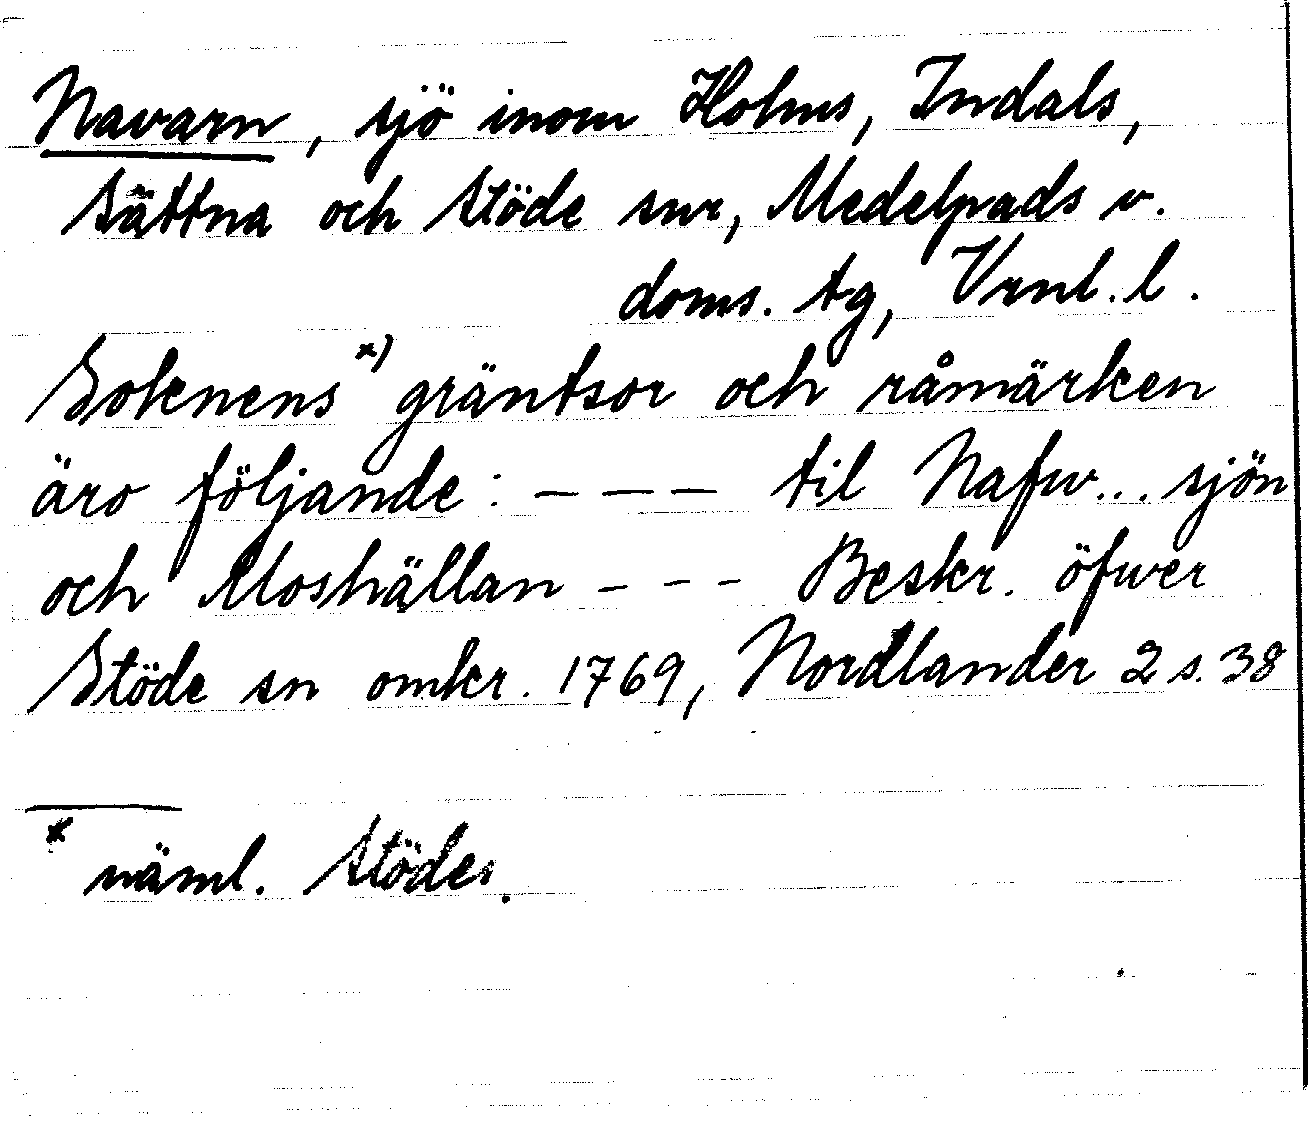 Navarn, sjö inom Holms, Indals,
Sättna och Stöde snr, Medelpads v.
doms. tg, Vrnl. l.
Soknens *) gräntsor och råmärken
äro följande: – – – til Nafw... sjön
och Moshällan – – – Beskr. öfwer
Stöde sn omkr. 1769, Nordlander 2 s. 38
* näml. Stödes.